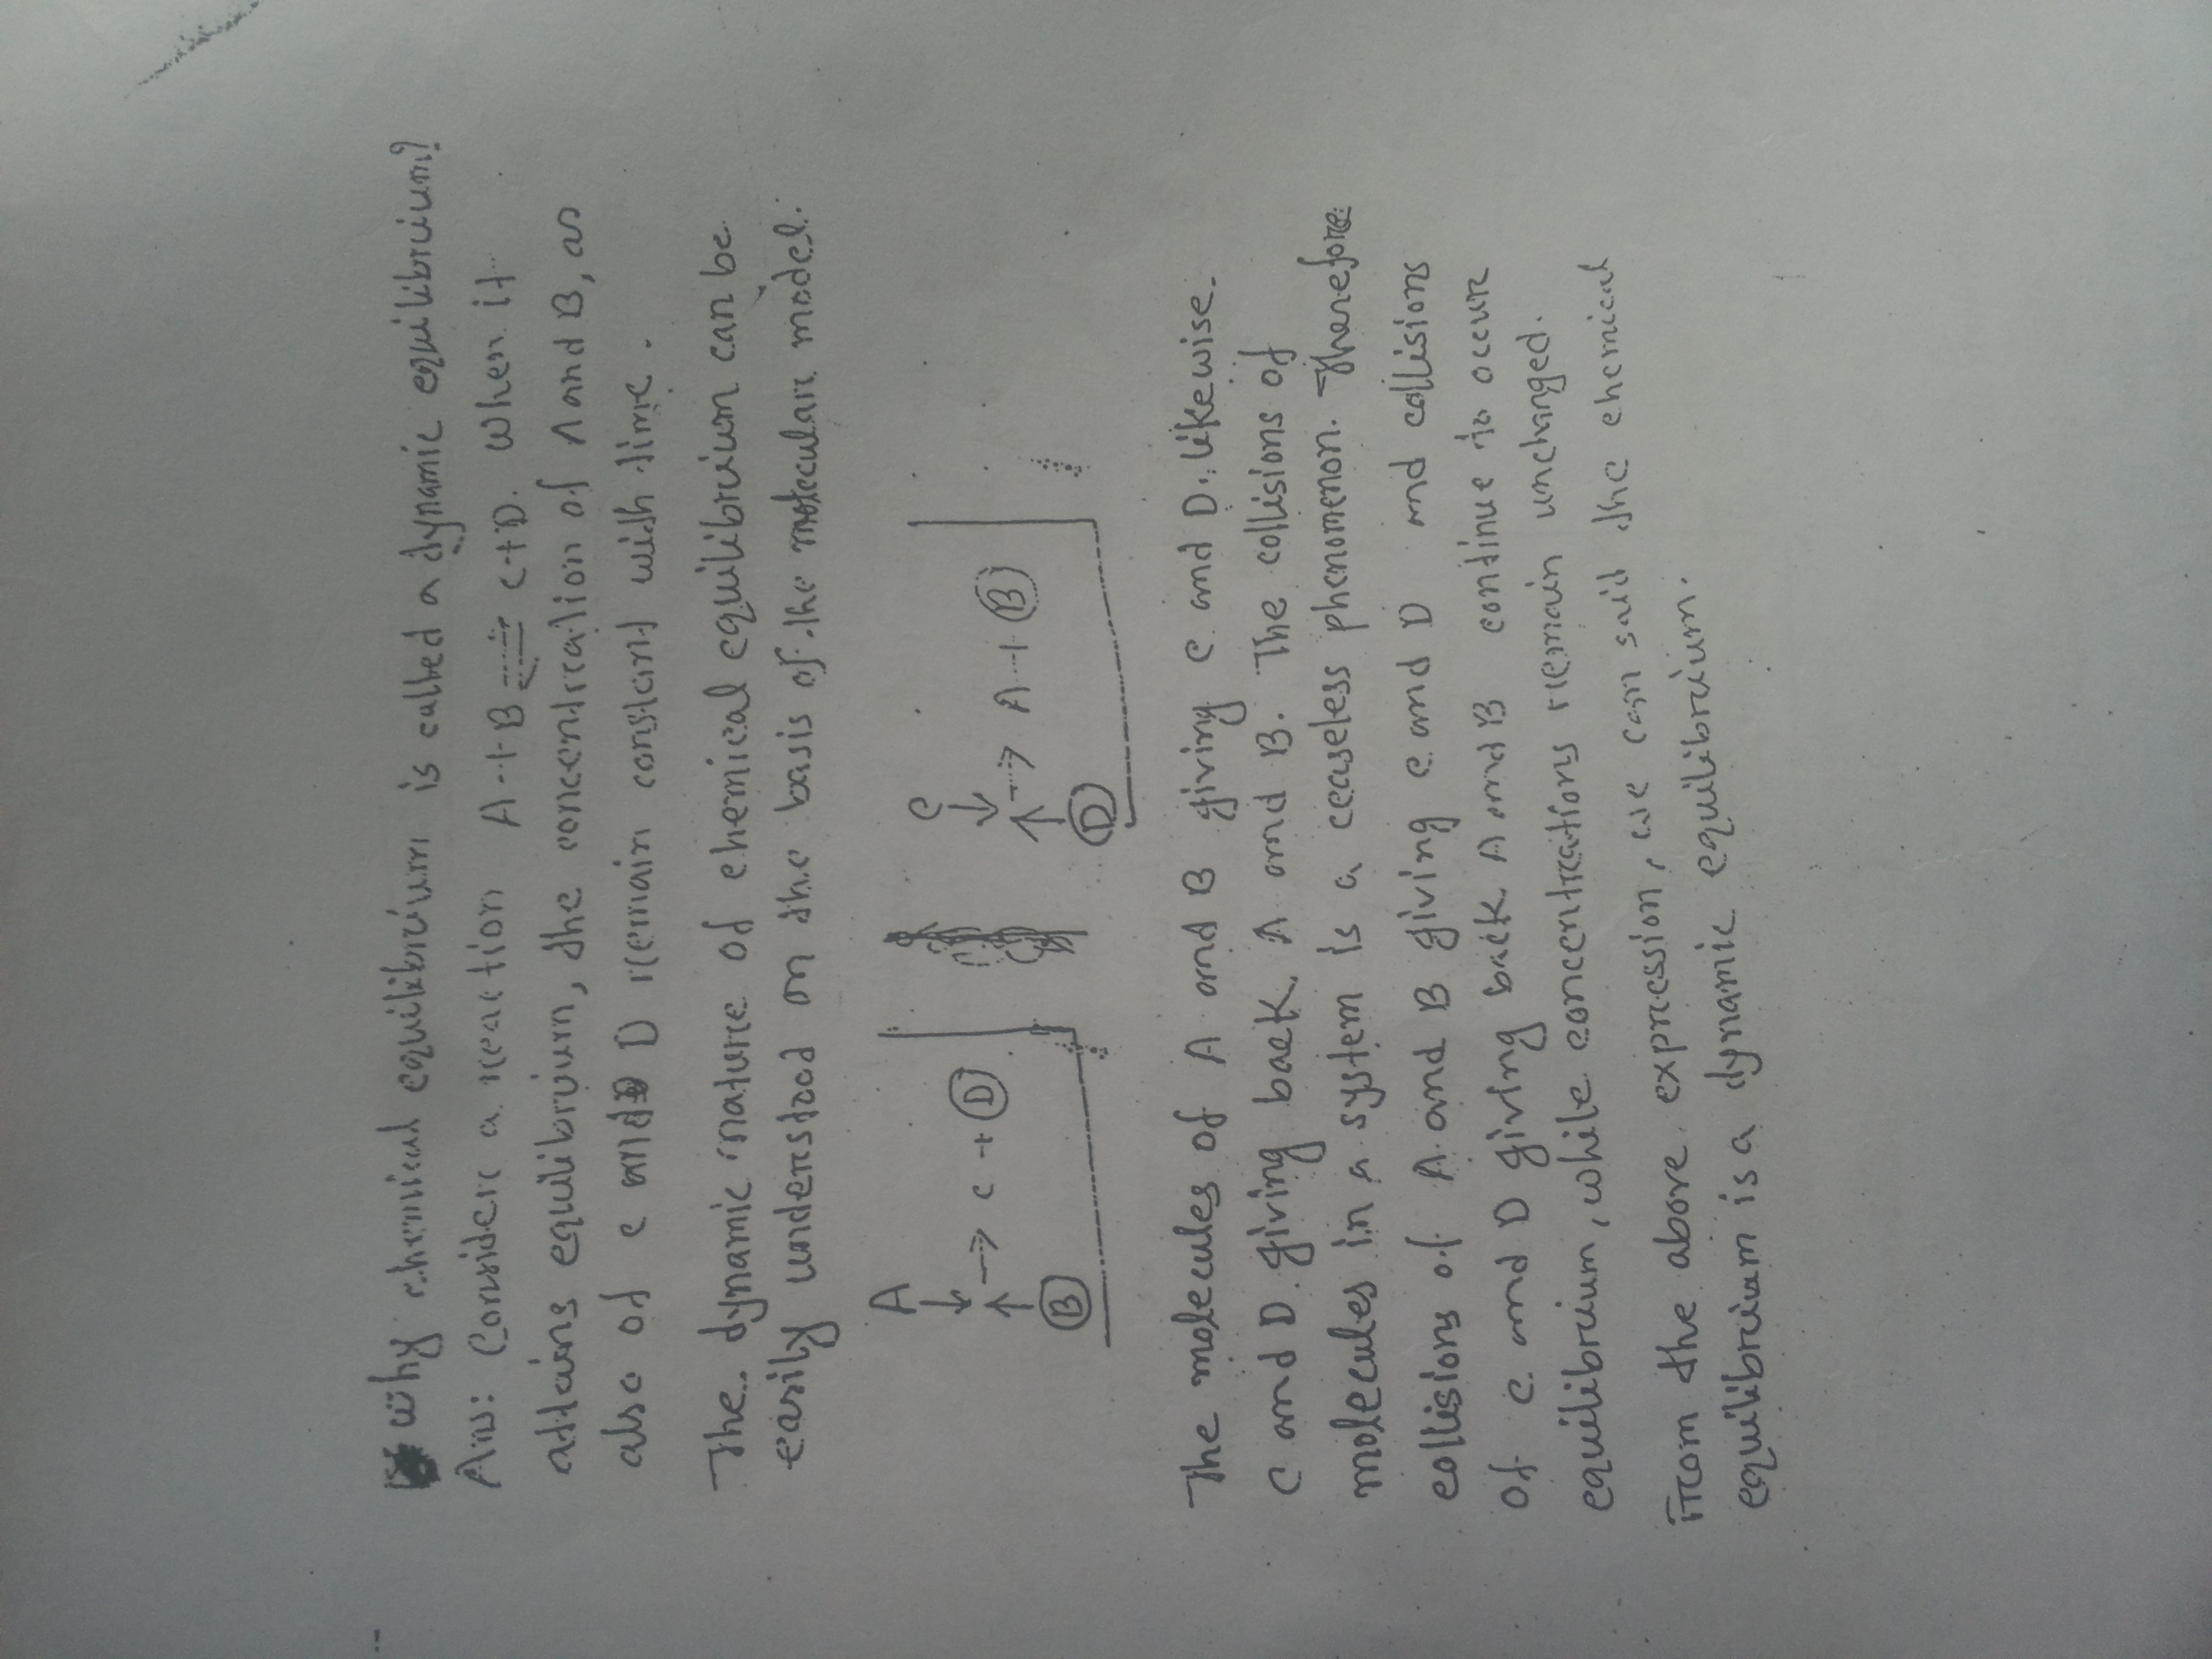 Why chemical equilibrium is called a dynamic equilibrium?
Ans: Consider a reaction A+B ⇌ C+D. When it
attains equilibrium, the concentration of A and B, as
also of C and D remain constant with time.
The dynamic nature of chemical equilibrium can be
easily understood on the basis of the molecular model.
A
↓
→ C + D
↑
B
C
↓
→ A + B
↑
D
The molecules of A and B giving C and D. likewise
C and D giving back A and B. The collisions of
molecules in a system is a ceaseless phenomenon. Therefore
collisions of A and B giving C and D and collisions
of C and D giving back A and B continue to occur
equilibrium, while concentrations remain unchanged.
From the above expression, we can said the chemical
equilibrium is a dynamic equilibrium.